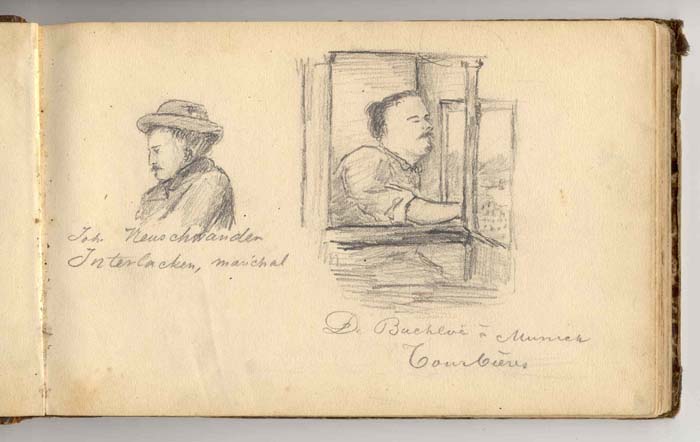 Joh Neuschwanden
Interlacken, maréchal
De Buchloë à Munich
Tourbières